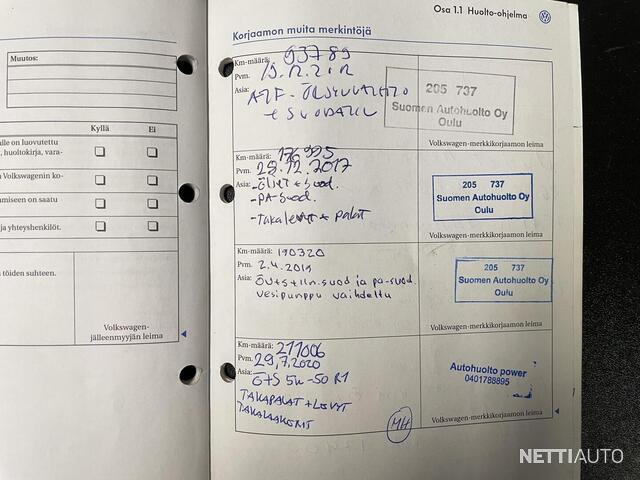 Muutos:
Kyllä Ei
alle on luovutettu
, huoltokirja, vara-
n Volkswagenin ko-
umiseen on saatu
ja yhteyshenkilöt.
n töiden suhteen.
Volkswagen-
jälleenmyyjän leima
Osa 1.1 Huolto-ohjelma
Korjaamon muita merkintöjä
Km-määrä: 93789
Pvm. 19.12.2012
Asia:
205 737
Suomen Autohuolto Oy
Oulu
Volkswagen-merkkikorjaamon leima
Km-määrä: 176995
Pvm. 29.12.2017
Asia: -Öljyt + suod.
-PA-suod.
-takalevyt + palat
205 737
Suomen Autohuolto Oy
Oulu
Volkswagen-merkkikorjaamon leima
Km-määrä: 190320
Pvm. 2.4.2019
Asia: ÖV+S+Iln.suod ja pa-suod.
vesipumppu vaihdettu
205 737
Suomen Autohuolto Oy
Oulu
Volkswagen-merkkikorjaamon leima
Km-määrä: 211006
Pvm. 29.7.2020
Asia: Ö+S 5W-50 R1
TAKAPALAT + LEVYT
TAKALAAKERIT
MH
Autohuolto power
0401788895
Volkswagen-merkkikorjaamon leima
NETTIAUTO